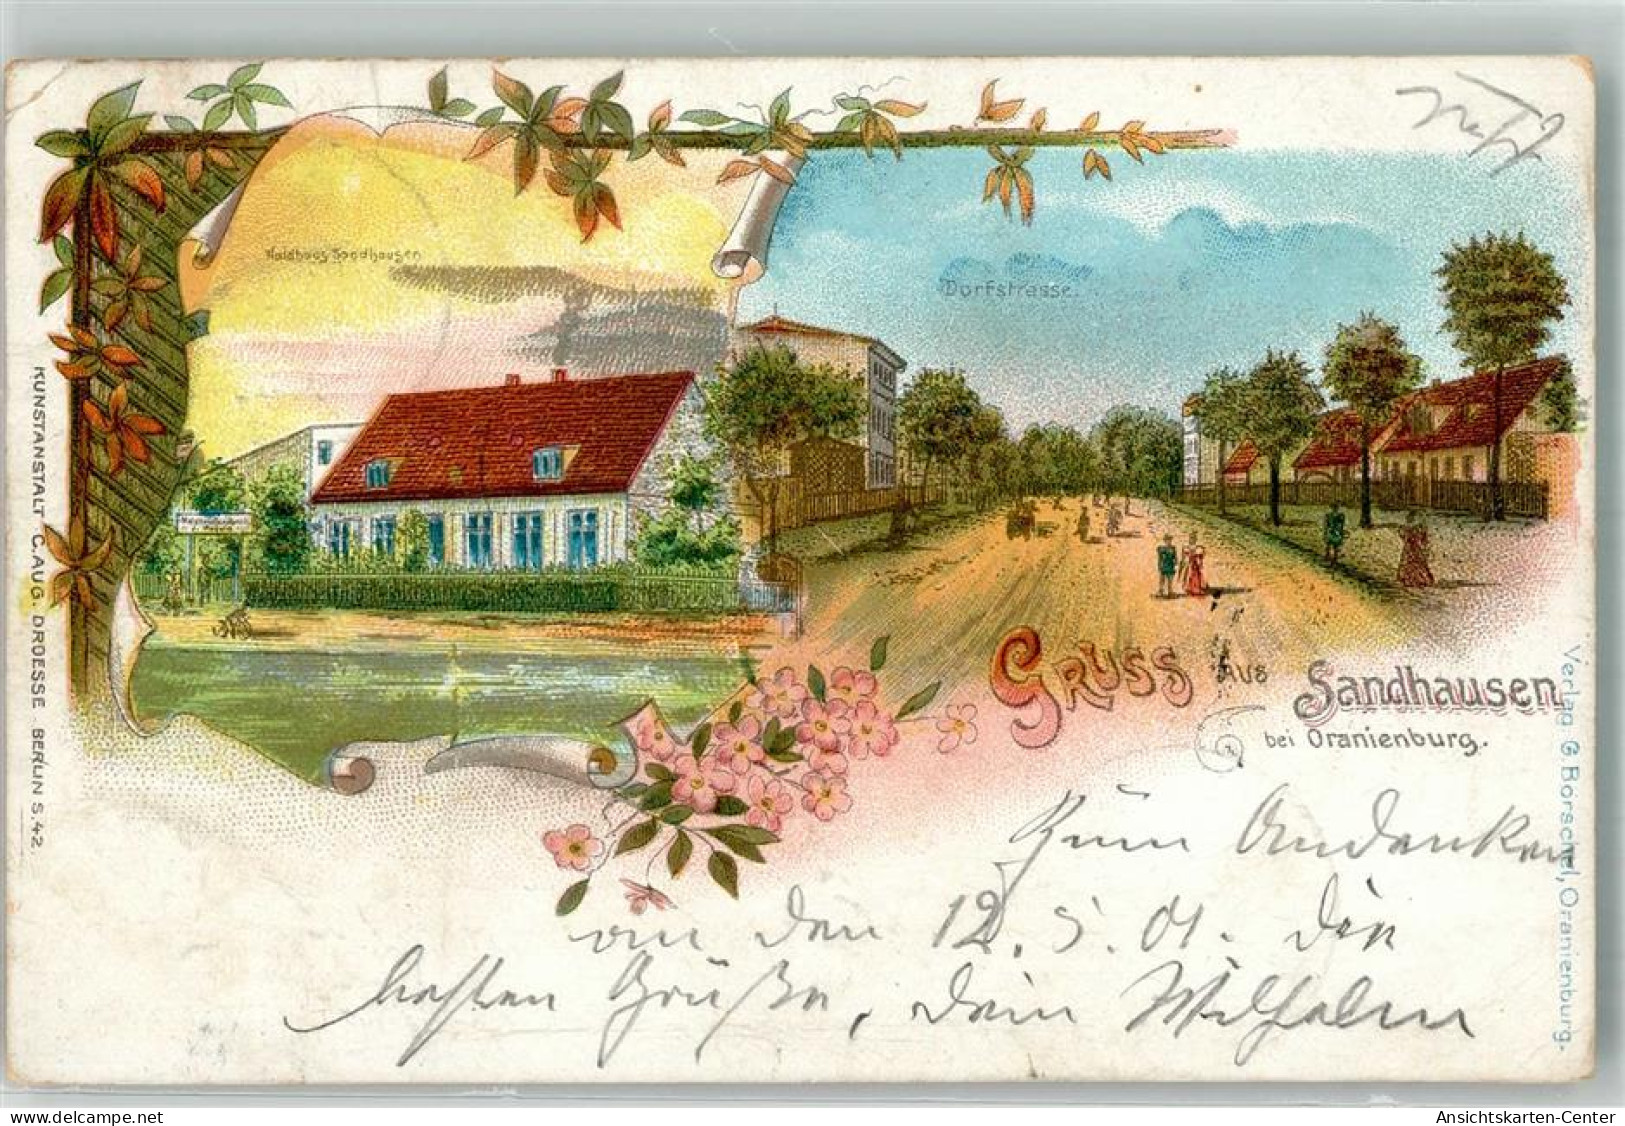 Waldhaus Sandhausen
Dorfstrasse.
Gruss aus Sandhausen
bei Oranienburg.
Zum Andenken
an den 12. 5. 01. die
besten Grüße, Dein Wilhelm
KUNSTANSTALT C. AUG. DROESSE BERLIN S. 42.
Verlag G Borschel, Oranienburg.
www.delcampe.net
Ansichtskarten-Center